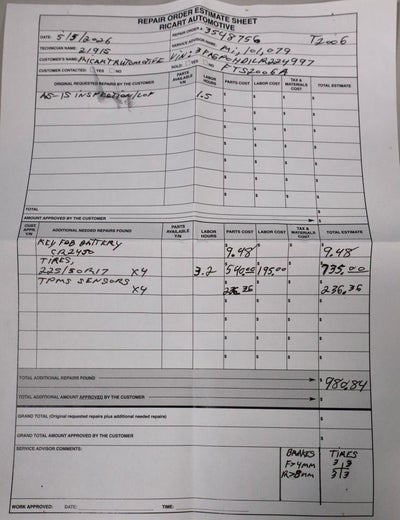 REPAIR ORDER ESTIMATE SHEET
RICART AUTOMOTIVE
DATE: 5/5/2026 REPAIR ORDER # 3548756 T2006
TECHNICIAN NAME: 21915 SERVICE ADVISOR NAME: Mi, 101,079
CUSTOMER'S NAME: RICART AUTOMOTIVE VIN:
CUSTOMER CONTACTED: YES NO SOLD: YES NO FTS2006A
ORIGINAL REQUESTED REPAIRS BY THE CUSTOMER PARTS AVAILABLE Y/N LABOR HOURS PARTS COST LABOR COST TAX & MATERIALS COST TOTAL ESTIMATE
AS-IS INSPECTION/LOF 1.5 $ $ $ $
$ $ $ $
$ $ $ $
$ $ $ $
$ $ $ $
$ $ $ $
$ $ $ $
TOTAL $
AMOUNT APPROVED BY THE CUSTOMER $
CUST. APPR. Y/N ADDITIONAL NEEDED REPAIRS FOUND PARTS AVAILABLE Y/N LABOR HOURS PARTS COST LABOR COST TAX & MATERIALS COST TOTAL ESTIMATE
KEY FOB BATTERY
CR2450 $ 9.48 $ $ $ 9.48
TIRES,
225/50R17 X4 3.2 $ 540.00 $ 195.00 $ $ 735.00
TPMS SENSORS
X4 $ 236.36 $ $ $ 236.36
$ $ $ $
$ $ $ $
$ $ $ $
TOTAL ADDITIONAL REPAIRS FOUND $ 980.84
TOTAL ADDITIONAL AMOUNT APPROVED BY THE CUSTOMER $
GRAND TOTAL (Original requested repairs plus additional needed repairs) $
GRAND TOTAL AMOUNT APPROVED BY THE CUSTOMER $
SERVICE ADVISOR COMMENTS: BRAKES TIRES
F>4mm 3 | 3
R>8mm 5 | 3
WORK APPROVED: DATE: TIME: